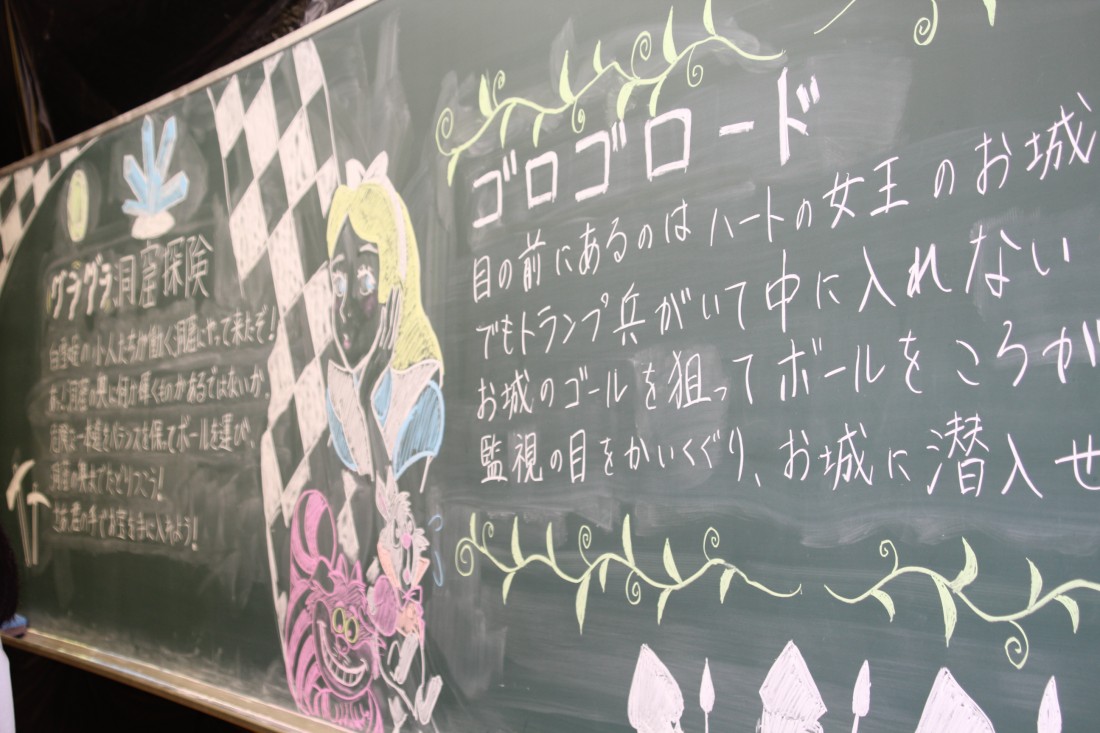 グラグラ洞窟探険
白雪姫の小人たちが働く洞窟にやって来たぞ!
洞窟の奥に何か輝くものがあるではないか。
バランスを保ってボールを運び、
洞窟の奥までたどりつこう!
手でお宝を手に入れよう!
ゴロゴロード
目の前にあるのはハートの女王のお城
でもトランプ兵がいて中に入れない
お城のゴールを狙ってボールをころが
監視の目をかいくぐり、お城に潜入せ